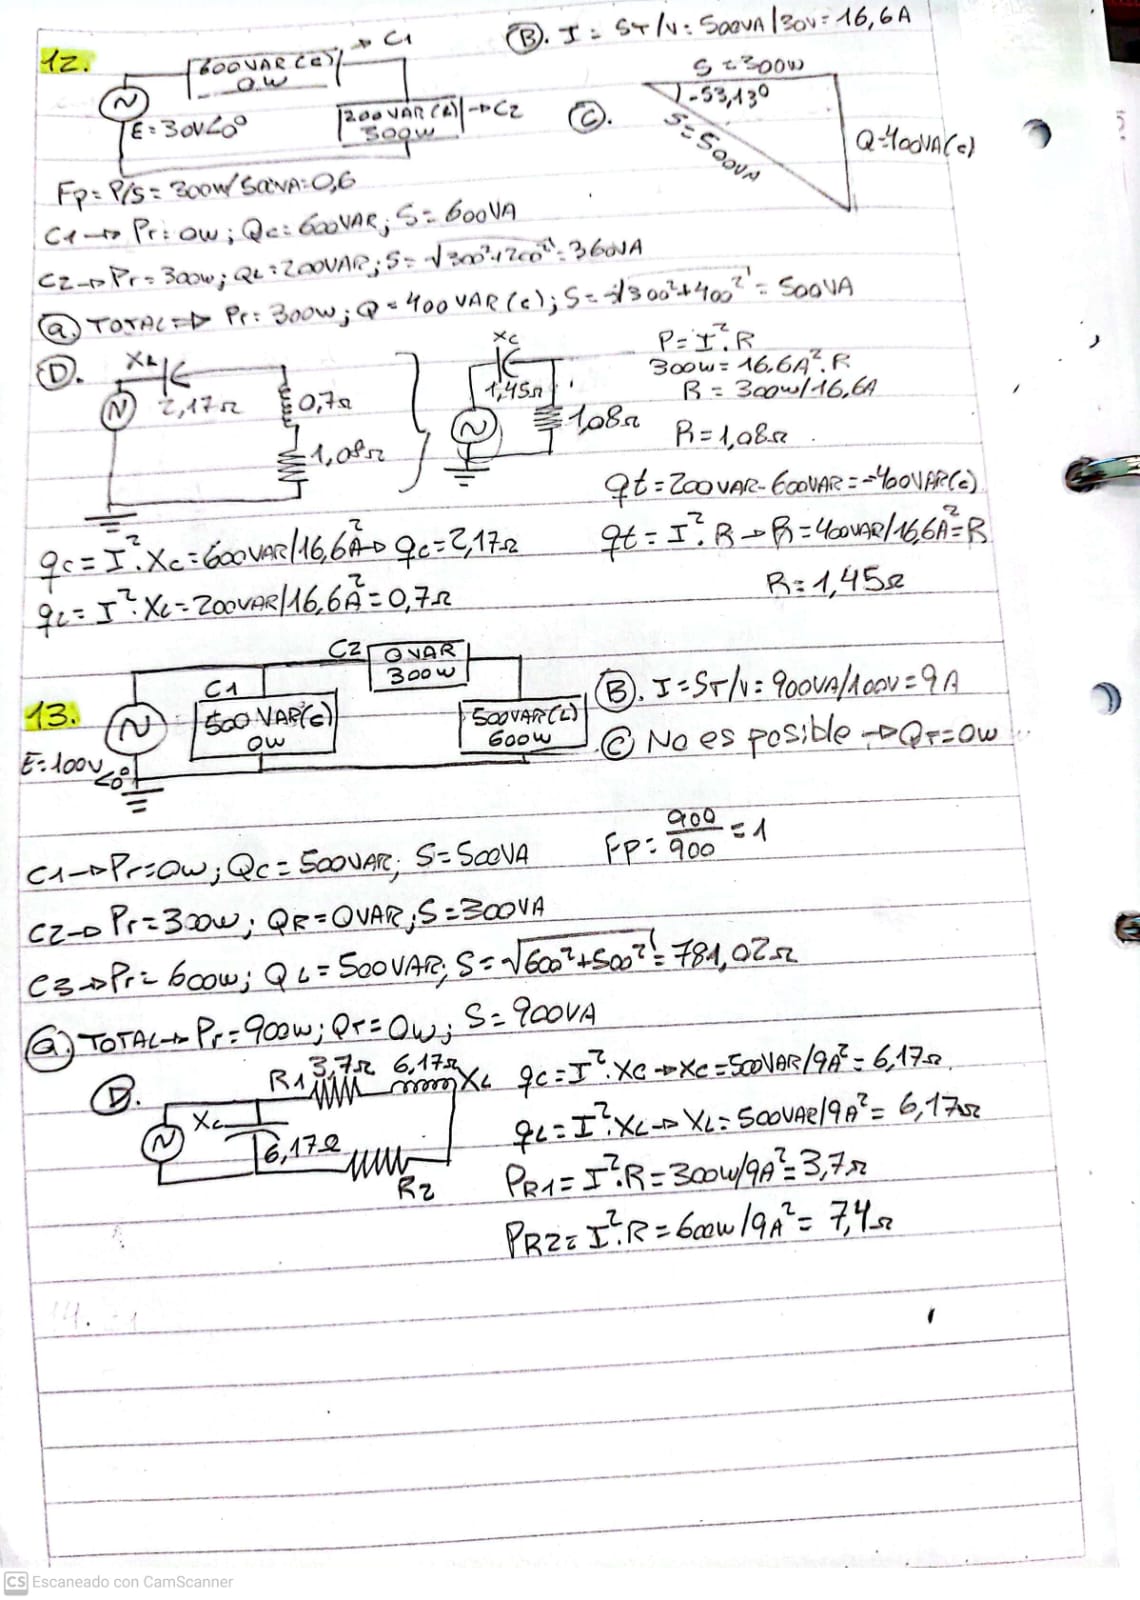 12.
600VAR(c)
0W
→ C1
E=30V∠0°
200VAR(L) → C2
300W
B. I = ST/V: 500VA/30V = 16,6A
C.
S=300W
-53,13°
S=500VA
Q=400VA(c)
Fp= P/S= 300W/500VA=0,6
C1 → Pr=0W; Qc=600VAR; S=600VA
C2 → Pr=300W; QL=200VAR; S=√300²+200²=360VA
a. TOTAL ⇒ Pr=300W; Q=400VAR(c); S=√300²+400² = 500VA
D.
XL
2,17Ω
0,7Ω
1,08Ω
Xc
1,45Ω
1,08Ω
P=I².R
300W=16,6A².R
R=300W/16,6A
R=1,08Ω
qt=200VAR-600VAR=-400VAR(c)
qc=I².Xc=600VAR/16,6A² → qc=2,17Ω
qt=I².R → R=400VAR/16,6A²=R
qL=I².XL=200VAR/16,6A²=0,7Ω
R=1,45Ω
13.
E=100V∠0°
C1
500VAR(c)
0W
C2
0VAR
300W
500VAR(L)
600W
B. I=ST/V= 900VA/100V=9A
C No es posible → QT=0W
Fp= 900/900 = 1
C1 → Pr=0W; Qc=500VAR; S=500VA
C2 → Pr=300W; QR=0VAR; S=300VA
C3 → Pr=600W; QL=500VAR; S=√600²+500²=781,02Ω
a. TOTAL → Pr=900W; QT=0W; S=900VA
D.
R1 3,7Ω 6,17Ω XL
Xc
6,17Ω
R2
qc=I².Xc → Xc=500VAR/9A²=6,17Ω
qL=I².XL → XL=500VAR/9A²=6,17Ω
PR1=I².R=300W/9A²=3,7Ω
PR2=I².R=600W/9A²=7,4Ω
14.
CS Escaneado con CamScanner